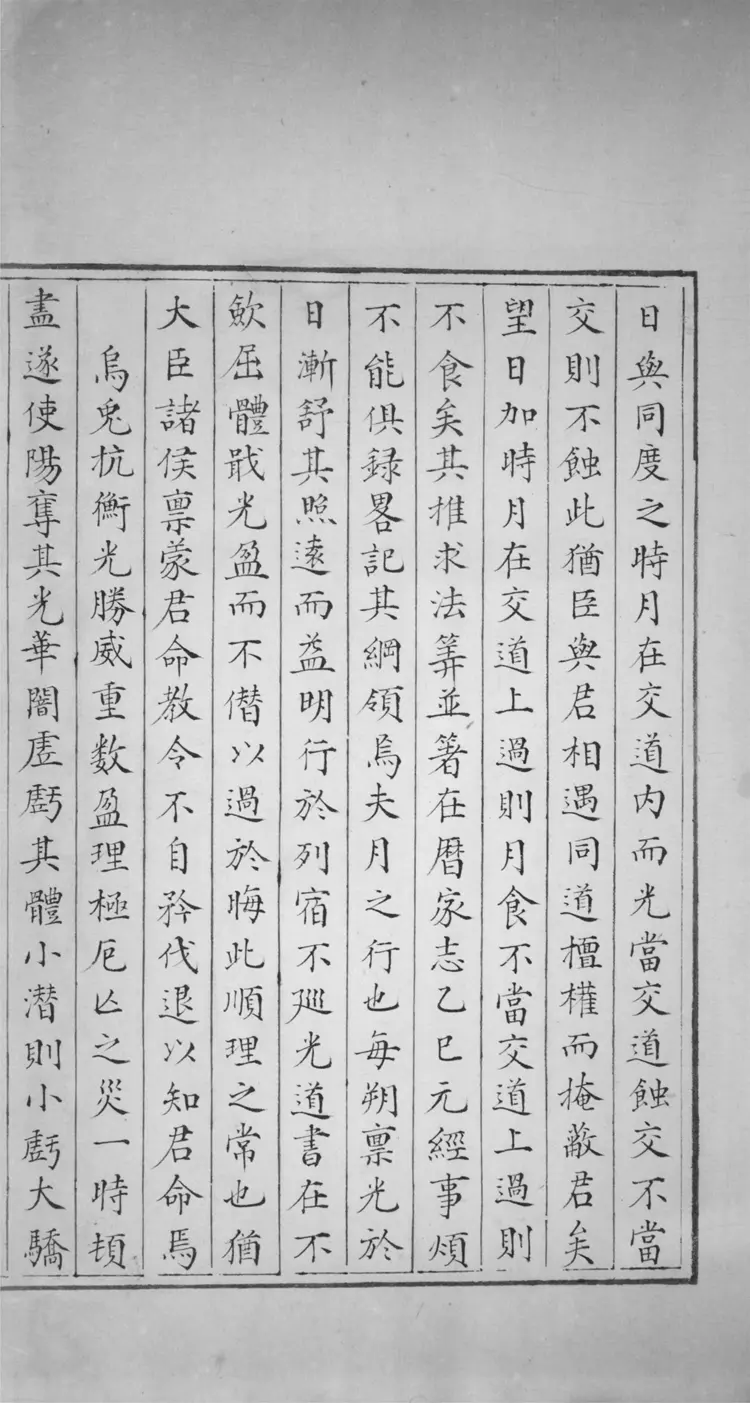 日與同度之時月在交道内而光當交道蝕交不當
交則不蝕此猶臣與君相遇同道擅權而掩蔽君矣
望日加時月在交道上過則月食不當交道上過則
不食矣其推求法筭並著在曆家志乙巳元經事煩
不能俱録畧記其綱領焉夫月之行也每朔禀光於
日漸舒其照逺而益明行於列宿不廵光道書在不
歉屈體戢光盈而不僣以過於晦此順理之常也猶
大臣諸侯禀蒙君命教令不自矜伐退以知君命焉
烏兎抗衡光勝威重数盈理極厄亾之災一時頓
盡遂使陽奪其光華闇虗虧其體小潜則小虧大驕